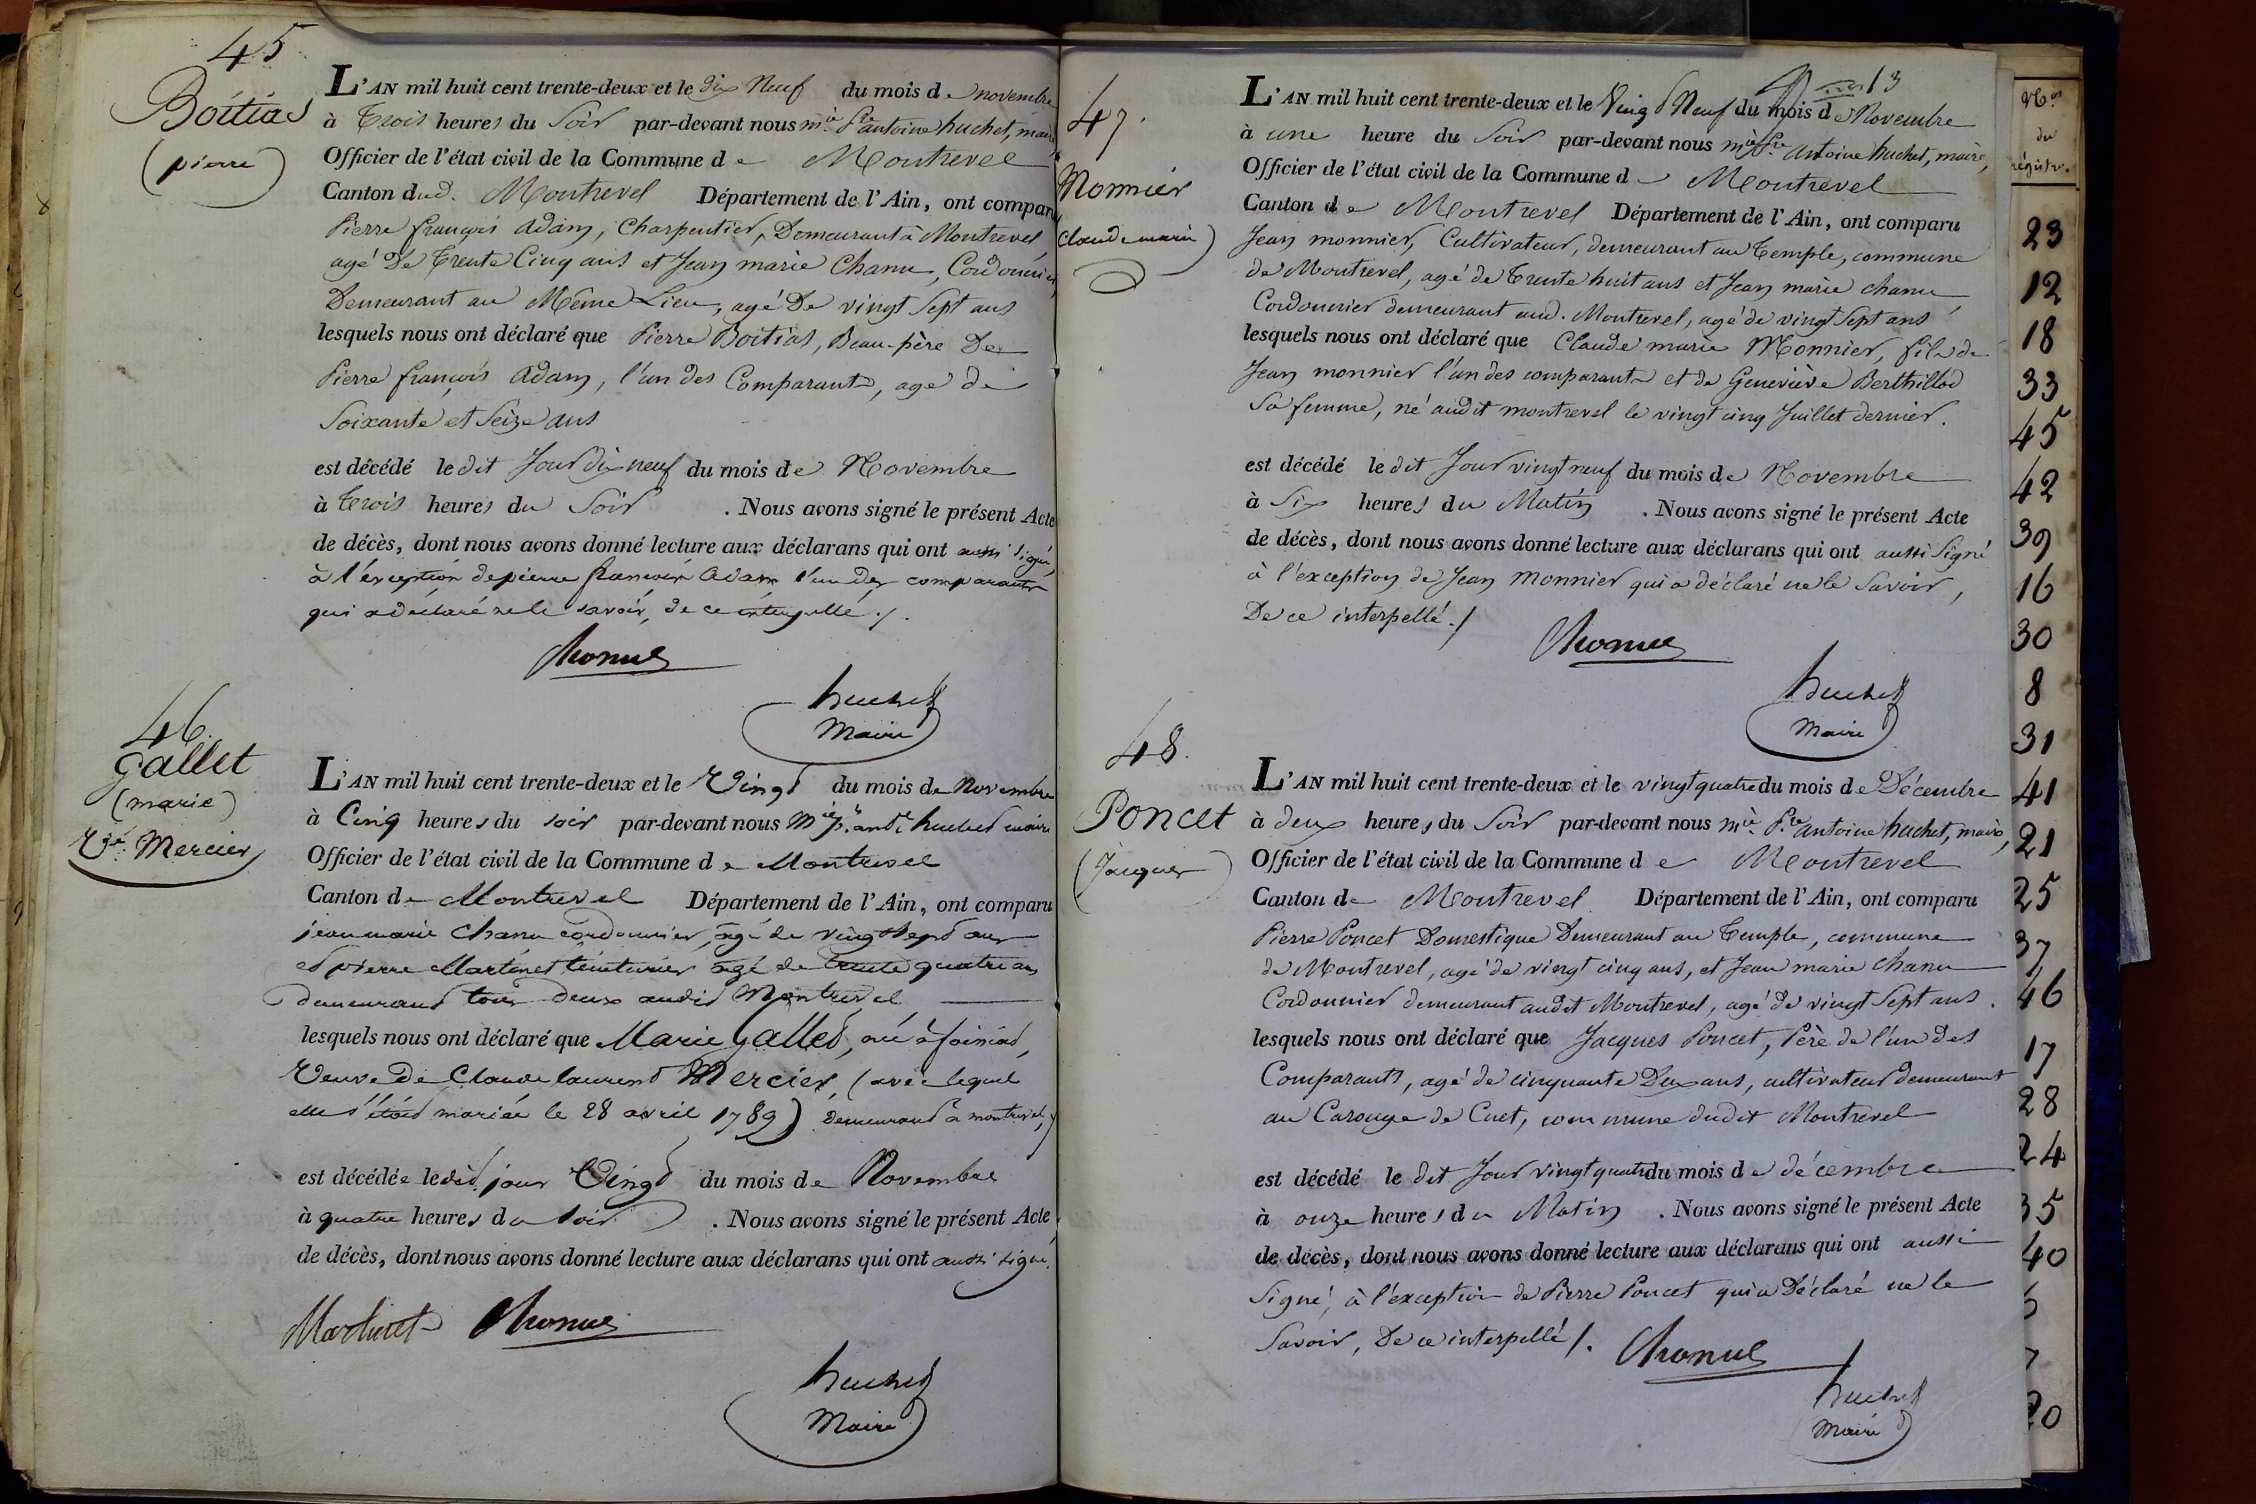 45
Boitias
(pierre)
L'AN mil huit cent trente-deux et le dix Neuf du mois de novembre
à Trois heures du Soir par-devant nous mie Pre antoine huchet, maire
Officier de l'état civil de la Commune de Montrevel
Canton dud. Montrevel Département de l'Ain, ont comparu
Pierre françois Adam, Charpentier, Demeurant à Montrevel
agé De Trente Cinq ans et Jean marie Chanu, Cordonnier,
Demeurant au Même Lieu, agé De vingt Sept ans
lesquels nous ont déclaré que Pierre Boitias, Beau-père De
Pierre françois Adam, l'un des Comparants, agé de
Soixante et Seize ans
est décédé ledit Jour dix neuf du mois de Novembre
à Trois heures du Soir . Nous avons signé le présent Acte
de décès, dont nous avons donné lecture aux déclarans qui ont aussi signé,
à l'exception de pierre francois adam l'un des comparants
qui a déclaré ne le savoir, de ce interpellé ./.
Chanu
huchet
Maire
46.
Gallet
(marie)
Vve Mercier
L'AN mil huit cent trente-deux et le Vingt du mois de Novembre
à Cinq heures du soir par-devant nous mie pre ante huchet maire
Officier de l'état civil de la Commune de Montrevel
Canton de Montrevel Département de l'Ain, ont comparu
jean marie Chanu cordonnier, agé de vingt sept ans
et pierre Martinet teinturier agé de trente quatre ans
demeurant tous deux audit Montrevel
lesquels nous ont déclaré que Marie Gallet, née à foissiat,
Veuve De Claude laurent Mercier, (avec lequel
elle s'étoit mariée le 28 avril 1789) demeurant à montrevel,
est décédée ledit jour Vingt du mois de Novembre
à quatre heures du soir . Nous avons signé le présent Acte
de décès, dont nous avons donné lecture aux déclarans qui ont aussi signé.
Martinet Chanu
huchet
Maire
13
47.
Monnier
(Claude marie)
L'AN mil huit cent trente-deux et le Vingt Neuf du mois de Novembre
à une heure du Soir par-devant nous mie Pre Antoine huchet, maire,
Officier de l'état civil de la Commune de Montrevel
Canton de Montrevel Département de l'Ain, ont comparu
Jean monnier, Cultivateur, demeurant au Temple, commune
de Montrevel, agé de Trente huit ans et Jean marie chanu,
Cordonnier demeurant aud. Montrevel, agé de vingt Sept ans
lesquels nous ont déclaré que Claude marie Monnier, fils de
Jean monnier l'un des comparants et de Geneviève Berthillod
Sa femme, né audit montrevel le vingt cinq Juillet dernier.
est décédé ledit Jour vingt neuf du mois de Novembre
à Six heures du Matin . Nous avons signé le présent Acte
de décès, dont nous avons donné lecture aux déclarans qui ont aussi Signé
à l'exception de Jean Monnier qui a déclaré ne le Savoir,
De ce interpellé ./
Chanu
huchet
Maire
48.
Poncet
(Jacques)
L'AN mil huit cent trente-deux et le vingt quatre du mois de Décembre
à deux heures du Soir par-devant nous mie Pre antoine huchet, maire,
Officier de l'état civil de la Commune de Montrevel
Canton de Montrevel Département de l'Ain, ont comparu
Pierre Poncet Domestique Demeurant au Temple, commune
de Montrevel, agé de vingt cinq ans, et Jean marie Chanu
Cordonnier demeurant audit Montrevel, agé de vingt Sept ans.
lesquels nous ont déclaré que Jacques Poncet, Père de l'un des
Comparants, agé de cinquante Deux ans, cultivateur demeurant
au Carouge de Cuet, commune dudit Montrevel
est décédé le dit Jour vingt quatre du mois de décembre
à onze heures du Matin . Nous avons signé le présent Acte
de décès, dont nous avons donné lecture aux déclarans qui ont aussi
Signé, à l'exception de Pierre Poncet qui a Déclaré ne le
Savoir, De ce interpellé /.
Chanu
huchet
Maire
Nos
du
régistre.
23
12
18
33
45
42
39
16
30
8
31
41
21
25
37
46
17
28
24
35
40